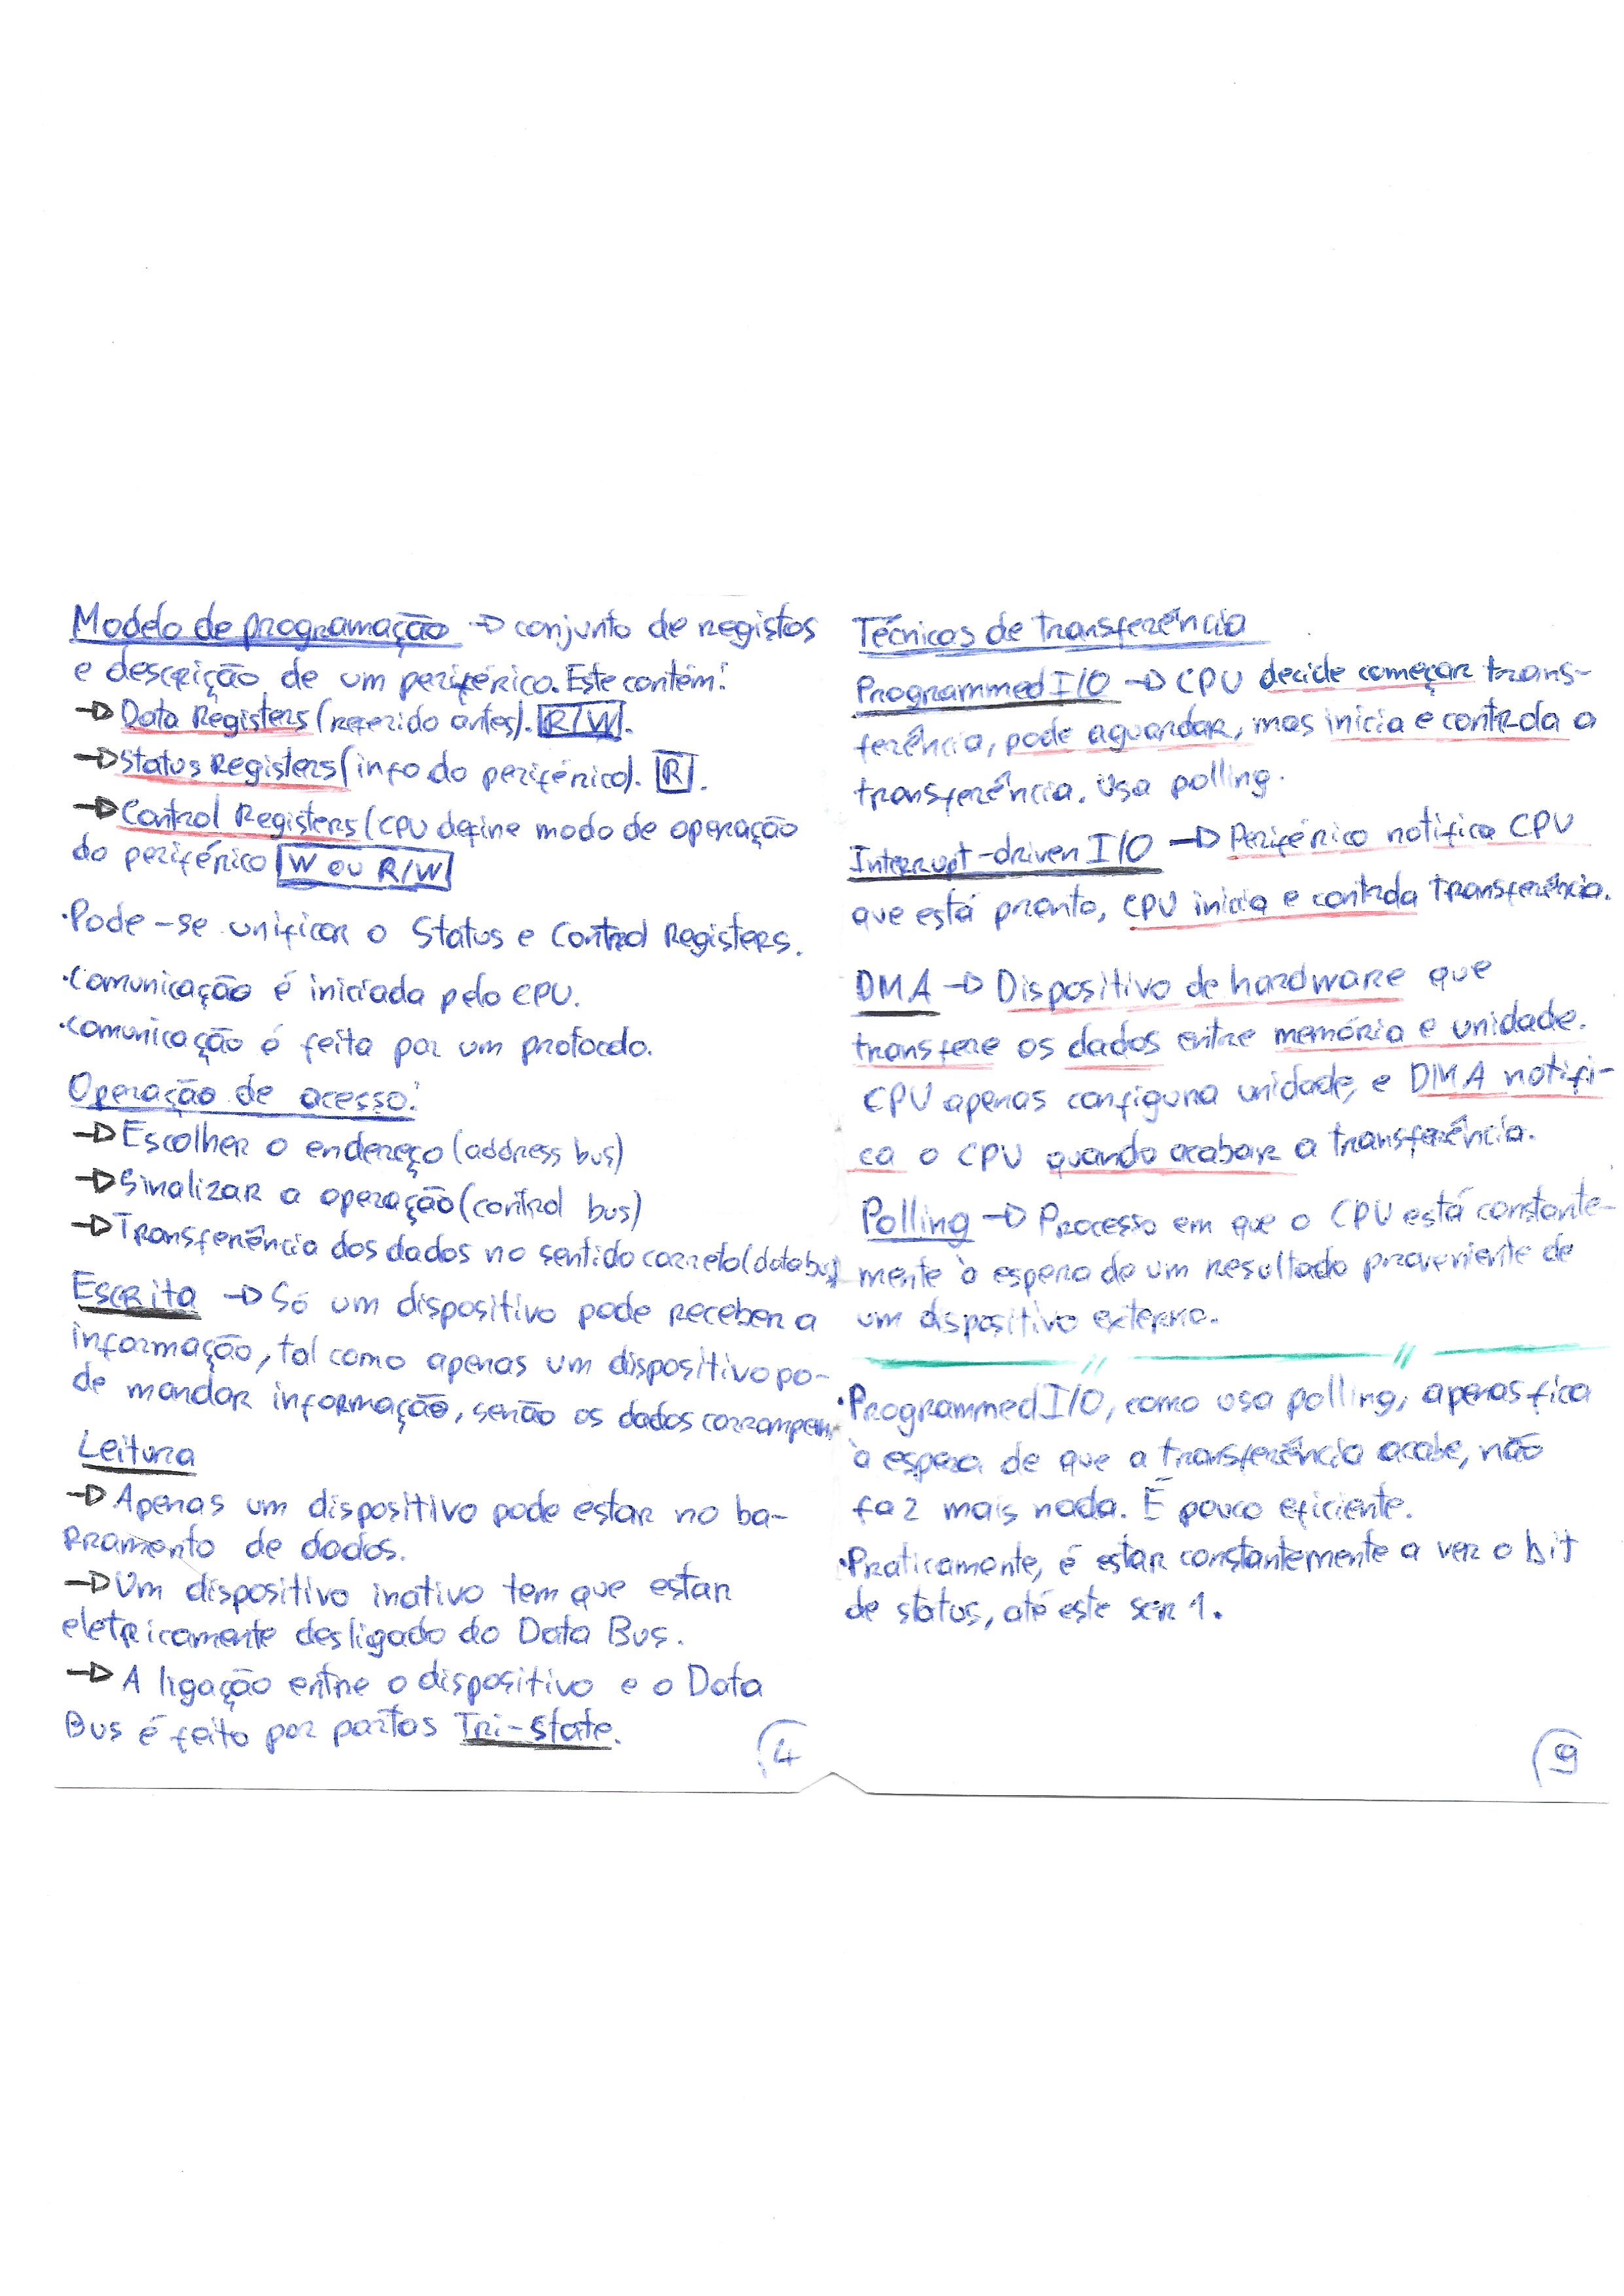 Modelo de programação → conjunto de registos
e descrição de um periférico. Este contém:
→ Data Registers (referido antes). R/W.
→ Status Registers (info do periférico). R.
→ Control Registers (CPU define modo de operação
do periférico W ou R/W
·Pode-se unificar o Status e Control Registers.
·Comunicação é iniciada pelo CPU.
·Comunicação é feita por um protocolo.
Operação de acesso:
→ Escolher o endereço (address bus)
→ Sinalizar a operação (control bus)
→ Transferência dos dados no sentido correto (data bus)
Escrita → Só um dispositivo pode receber a
informação, tal como apenas um dispositivo po-
de mandar informação, senão os dados corrompem.
Leitura
→ Apenas um dispositivo pode estar no ba-
rramento de dados.
→ Um dispositivo inativo tem que estar
eletricamente desligado do Data Bus.
→ A ligação entre o dispositivo e o Data
Bus é feito por portas Tri-State.
4
Técnicas de transferência
Programmed I/O → CPU decide começar trans-
ferência, pode aguardar, mas inicia e controla a
transferência. Usa polling.
Interrupt-driven I/O → Periférico notifica CPU
que está pronto, CPU inicia e controla transferência.
DMA → Dispositivo de hardware que
transfere os dados entre memória e unidade.
CPU apenas configura unidade, e DMA notifi-
ca o CPU quando acabar a transferência.
Polling → Processo em que o CPU está constante-
mente à espera de um resultado proveniente de
um dispositivo externo.
·Programmed I/O, como usa polling, apenas fica
à espera de que a transferência acabe, não
faz mais nada. É pouco eficiente.
·Praticamente, é estar constantemente a ver o bit
de status, até este ser 1.
9